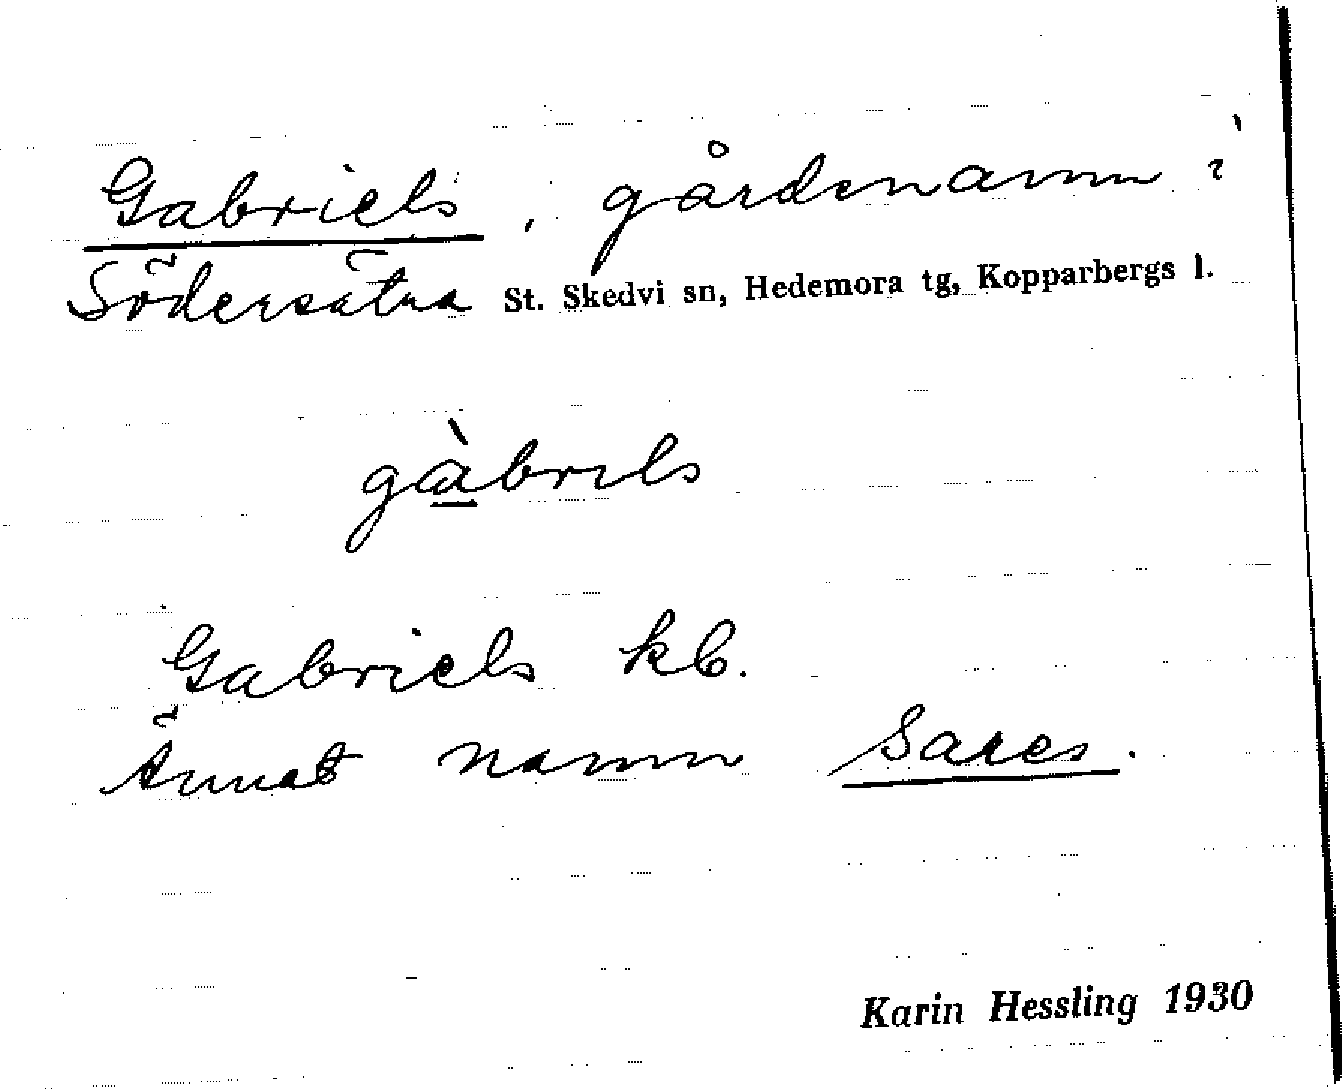 Gabriels, gårdsnamn i
Södersätra St. Skedvi sn, Hedemora tg, Kopparbergs l.
gàbrıls
Gabriels kb.
Annat namn Sares.
Karin Hessling 1930